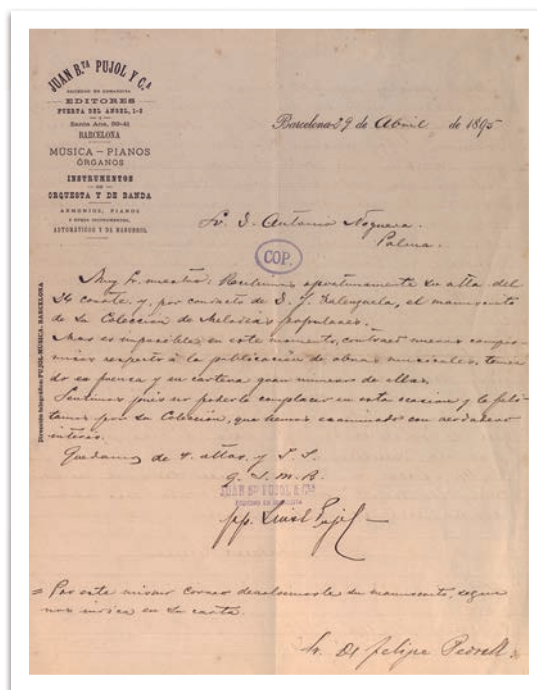 JUAN B.TA PUJOL Y C.A
SOCIEDAD EN COMANDITA
EDITORES
PUERTA DEL ANGEL, 1-3
Y
Santa Ana, 39-41
BARCELONA
MÚSICA — PIANOS
ÓRGANOS
INSTRUMENTOS
DE
ORQUESTA Y DE BANDA
ARMONIUS, PIANOS
Y OTROS INSTRUMENTOS,
AUTOMÁTICOS Y DE MANUBRIO.
Barcelona 29 de Abril de 1895
Sr. D. Antonio Noguera.
Palma.
COP.
Dirección telegráfica: PUJOL-MÚSICA. BARCELONA
Muy Sr. nuestro: Recibimos oportunamente su atta. del
24 corrte. y, por conducto de D. J. Valenzuela, el manuscrito
de su Colección de Melodías populares.
Mas es imposible en este momento, contraer nuevos compro-
misos respecto á la publicación de obras musicales, tenien-
do en prensa y en cartera gran número de ellas.
Sentimos pués no poderle complacer en esta ocasion y le feli-
tamos por su Colección, que hemos examinado con verdadero
interés.
Quedamos de V. attos. y S. S.
q. s. m. b.
JUAN B.TA PUJOL & C.IA
SOCIEDAD EN COMANDITA
pp. Pujol
= Por este mismo correo devolvemosle su manuscrito, segun
nos indica en su carta.
Sr. Dn Felipe Pedrell.